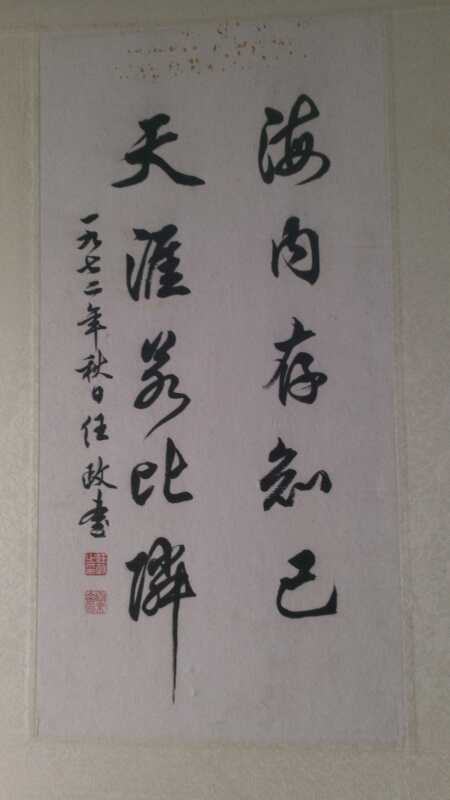 海内存知己
天涯若比隣
一九七二年秋日任政书